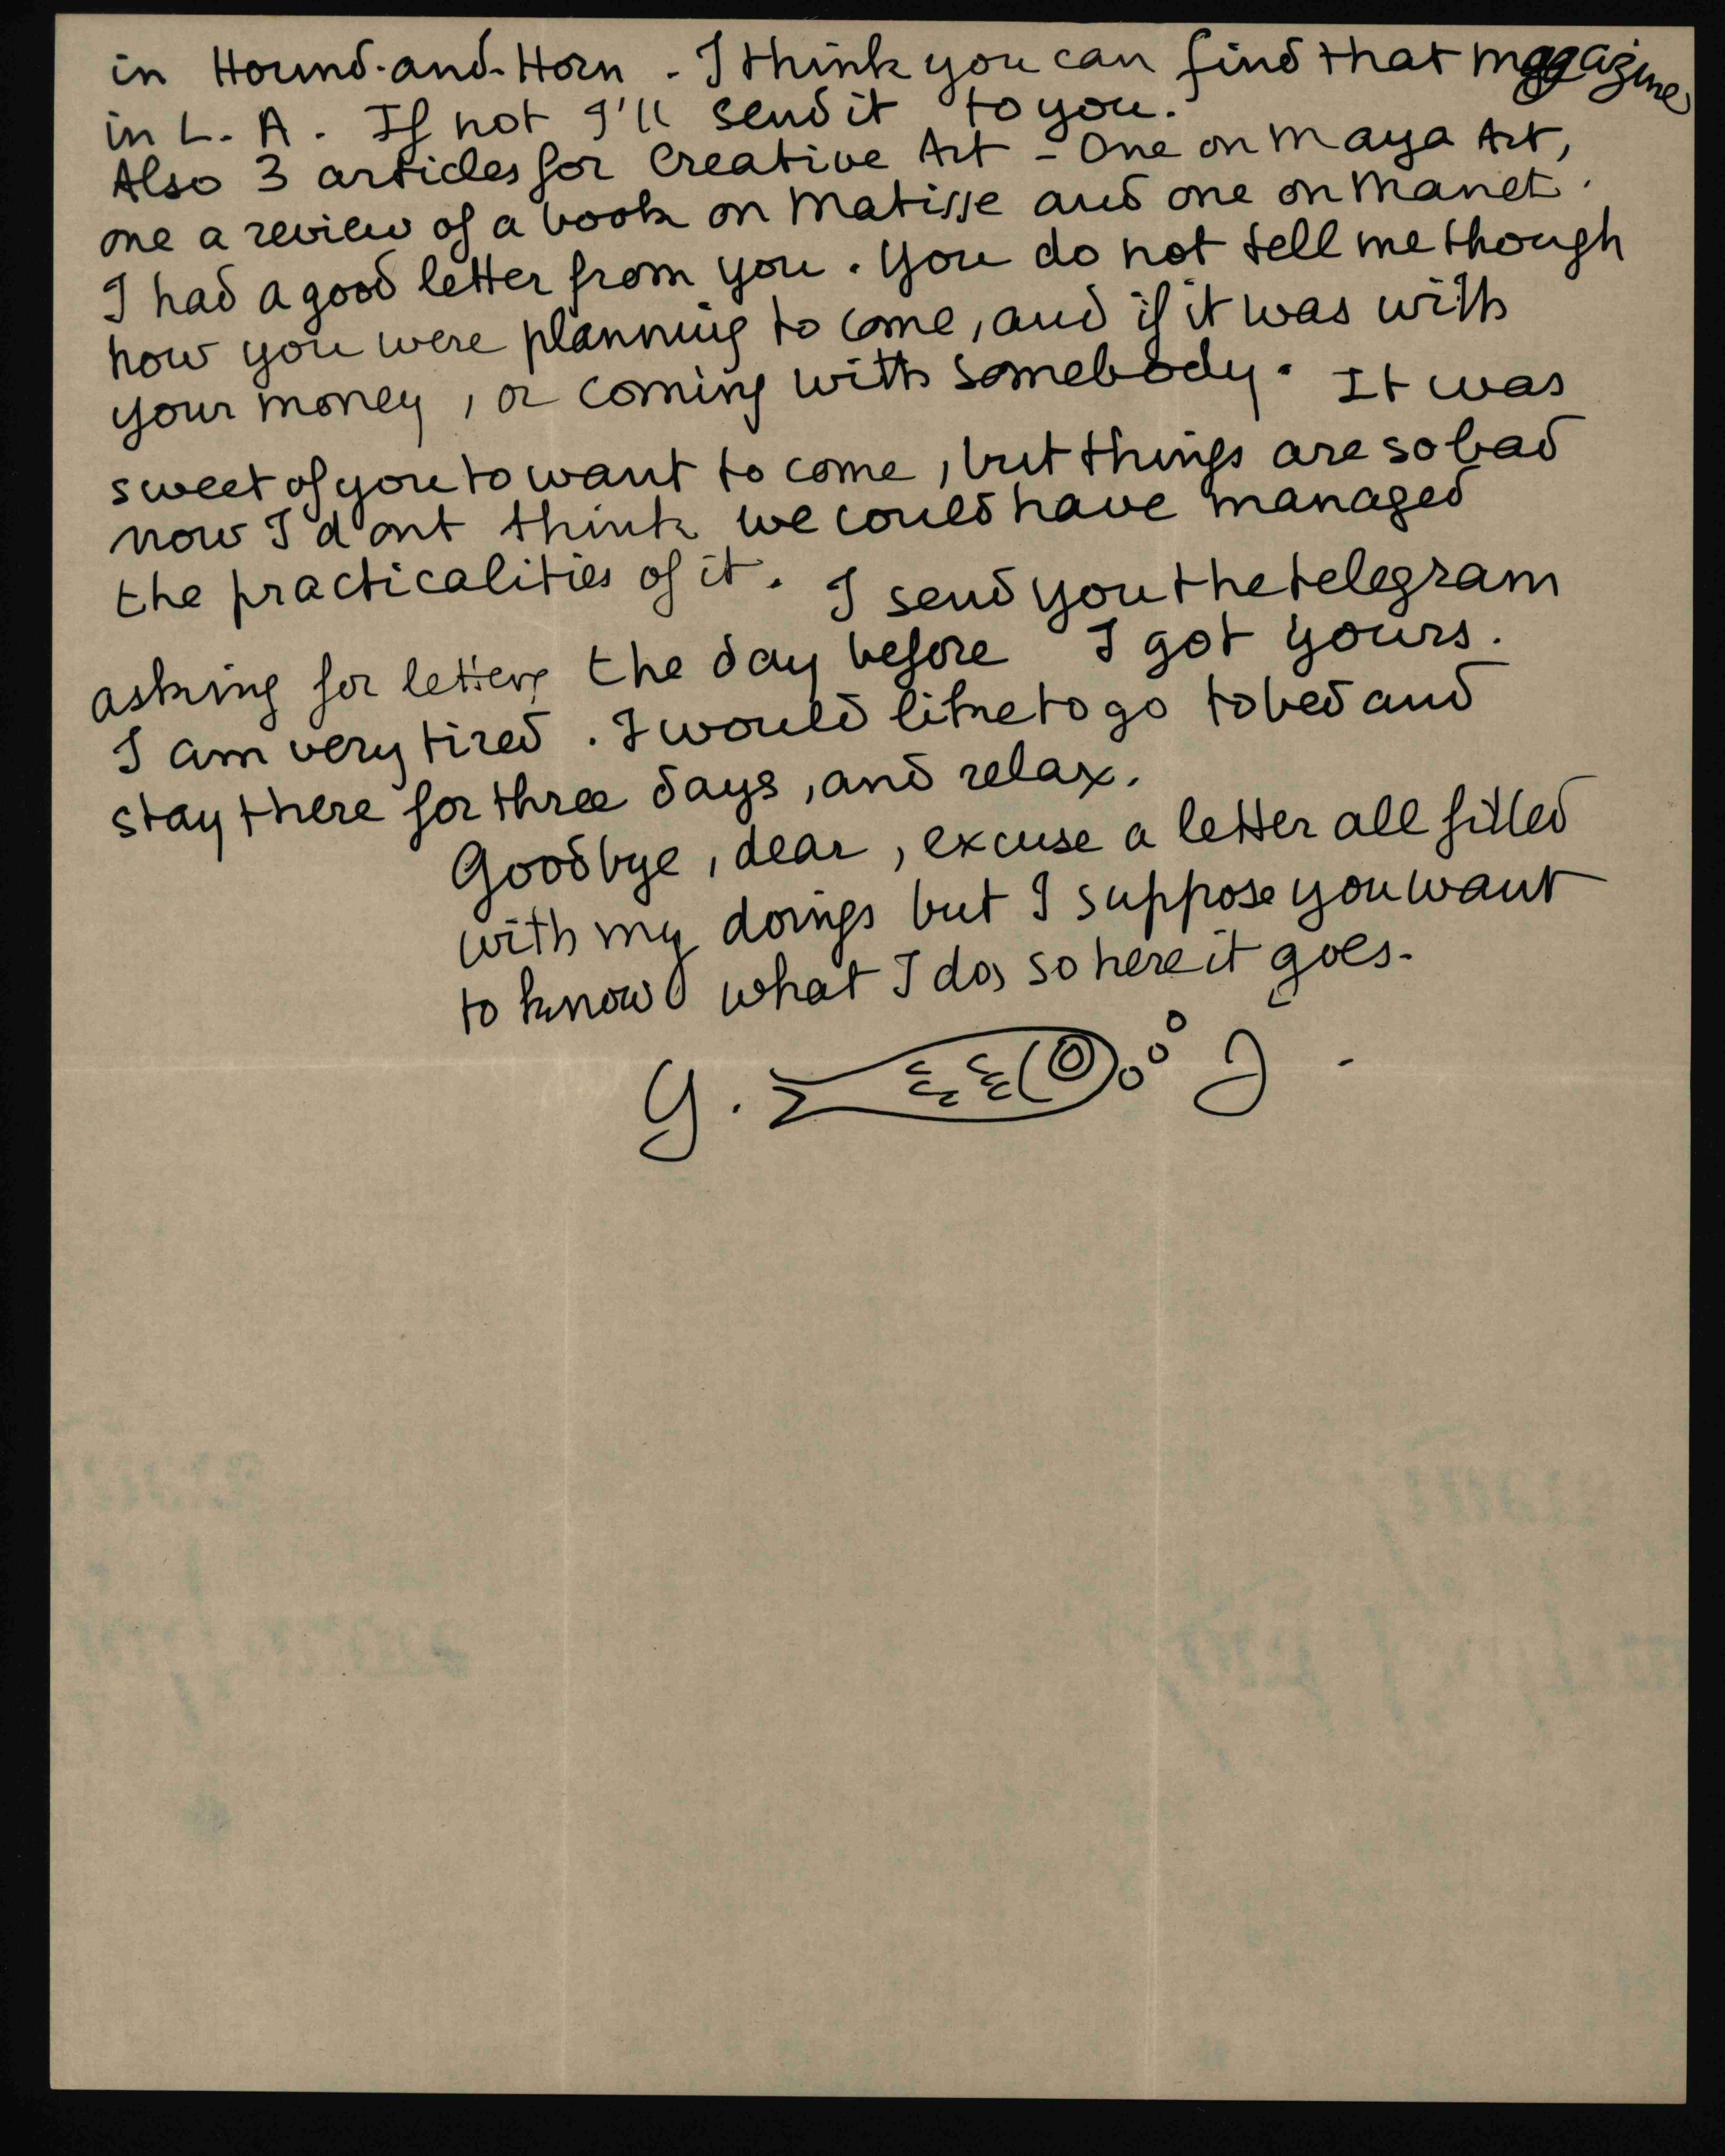 in Hound-and-Horn - I think you can find that magazine
in L. A. If not I'll send it to you.
Also 3 articles for Creative Art - One on Maya Art,
one a review of a book on Matisse and one on Manet.
I had a good letter from you. You do not tell me though
how you were planning to come, and if it was with
your money, or coming with somebody. It was
sweet of you to want to come, but things are so bad
now I d'ont think we could have managed
the practicalities of it. I send you the telegram
asking for letters the day before I got yours.
I am very tired. I would like to go to bed and
stay there for three days, and relax.
Goodbye, dear, excuse a letter all filled
with my doings but I suppose you want
to know what I do, so here it goes.
Y. J -